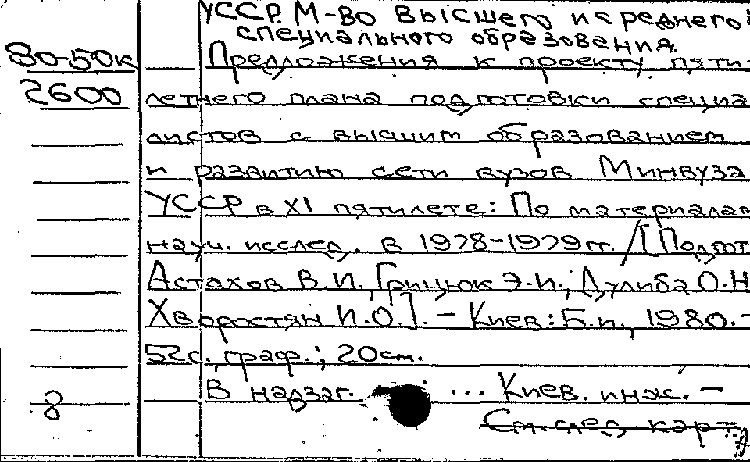 УССР. М-во высшего и среднего
специального образования.
80-50к Предложения к проекту пяти-
2600 летнего плана подготовки специа
листов с высшим образованием
и развитию сети вузов Минвуза
УССР в XI пятилете: По материалам
науч. исслед. в 1978-1979 гг. / [Подгот.
Астахов В.И., Грицюк Э.И., Дулиба О.Н.
Хворостян И.О.]. - Киев: Б.и., 1980. -
52с., граф.; 20см.
В надзаг. ... Киев. инж. -
8 См. след. карт.